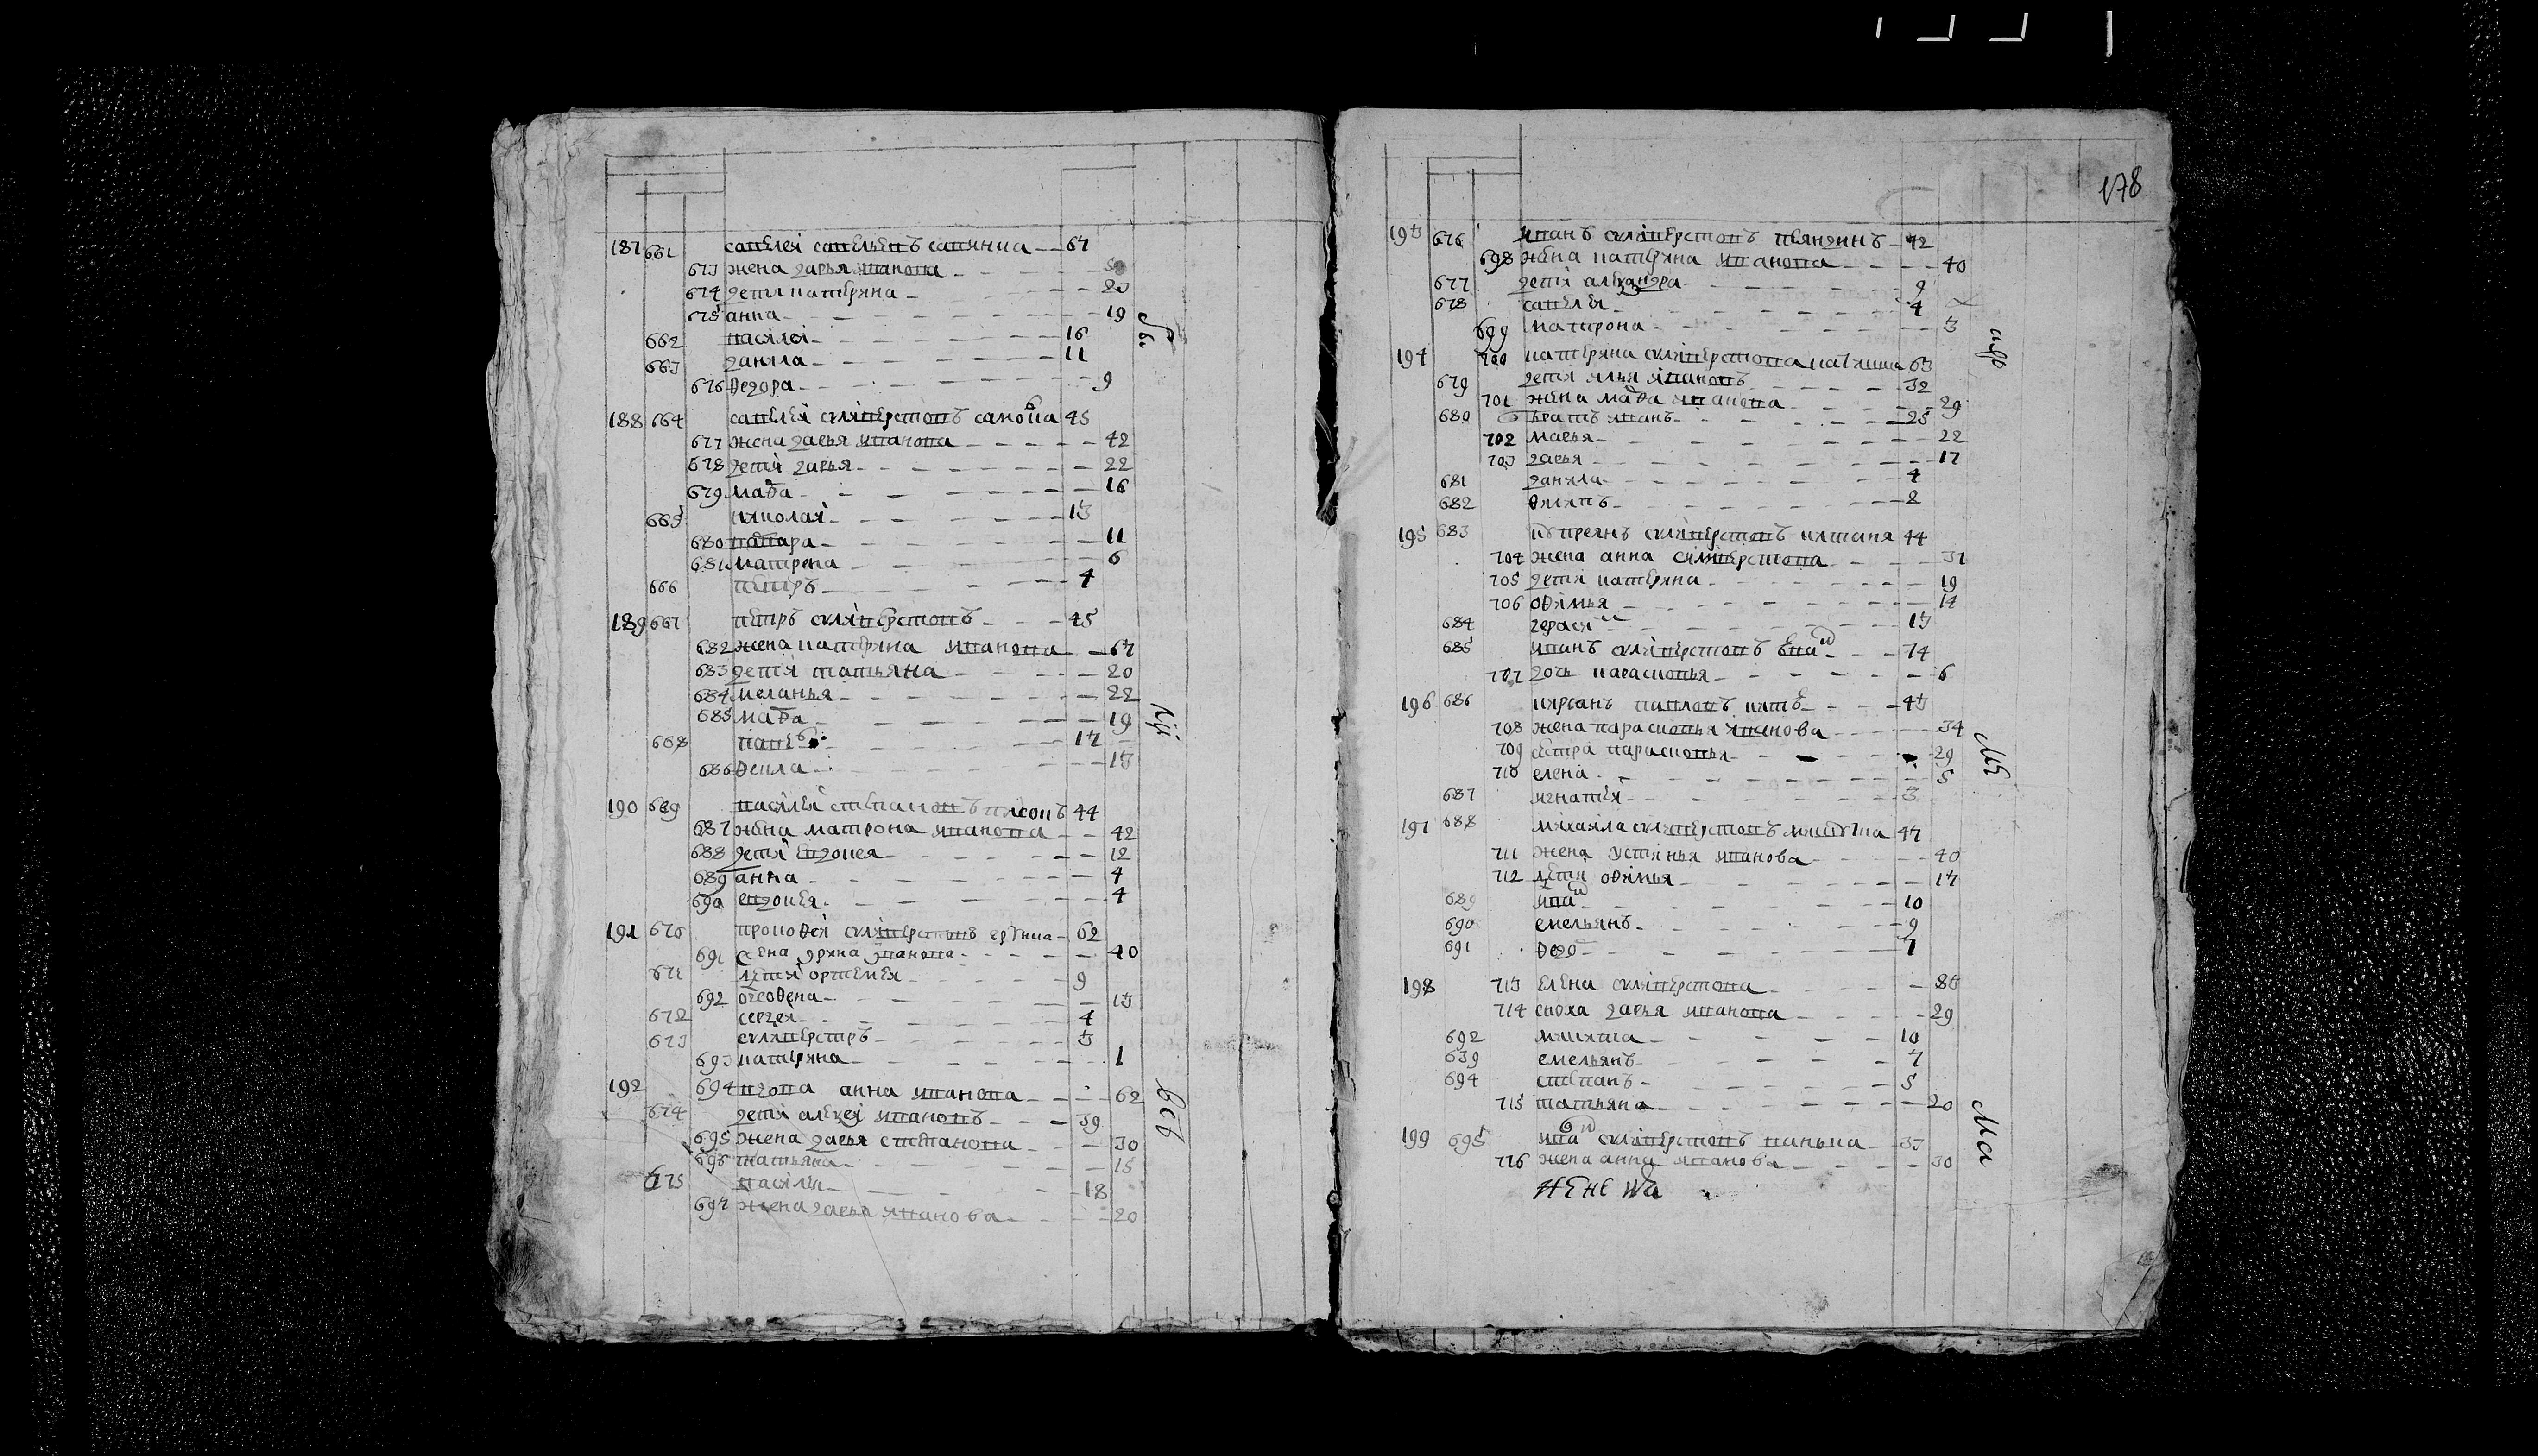 187 661 савелеи савельевъ савянка 67
673 жена дарья иванова
674 дети катеряна 20
675 анна 19
662 василеи 16
663 данила 11
676 ѳедора 9
188 664 савелеи силиверстовъ 45
677 жена дарья иванова 42
678 дети дарья 22
679 маѳа 16
665 николаи 13
680 варвара 11
681 матрена 6
666 петръ 4
189 667 петръ силиверстовъ 45
682 жена катеряна иванова 67
683 дети татьяна 20
684 меланья 22
685 маѳа 19
668 17
686 ѳекла 13
190 669 василеи степановъ 44
687 жена матрона иванова 42
688 дети евдокея 12
689 анна 4
690 евдокея 4
191 670 прокоѳеи силиверстовъ 62
691 жена ирина иванова 40
671 дети ортемеи 9
692 огроѳена 13
672 сергеи 4
673 силиверстръ 3
693 катеряна 1
192 694 вдова анна иванова 62
674 дети алексеи ивановъ 39
695 жена дарья степанова 30
696 татьяна 15
675 василеи 18
697 жена дарья иванова 20
178
193 676 иванъ силиверстовъ 42
698 жена катеряна иванова 40
677 дети алехандра 9
678 савелеи 4
699 матрона 3
194 700 катеряна силиверстова 63
679 дети илья ивановъ 32
701 жена маѳа иванова 29
680 братъ иванъ 25
702 марья 22
703 дарья 17
681 данила 4
682 ѳилипъ 2
195 683 купреянъ силиверстовъ 44
704 жена анна силиверстова 31
705 дети катеряна 19
706 оѳимья 14
684 гераси 13
685 иванъ силиверстовъ 74
707 дочь парасковья 6
196 686 кирсанъ павловъ 43
708 жена парасковья иванова 34
709 сестра парасковья 29
710 елена 5
687 игнатеи 3
197 688 михаила силиверстовъ 47
711 жена устинья иванова 40
712 дети оѳимья 17
689 ива 10
690 емельянъ 9
691 ѳедо 7
198 713 елена силиверстова 83
714 сноха дарья иванова 29
692 микита 10
639 емельянъ 7
694 степанъ 5
715 татьяна 20
199 695 ива силиверстовъ 37
716 жена анна иванова 30